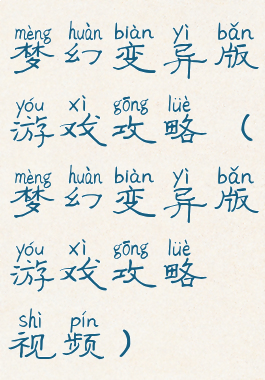 mèng huàn biàn yì bǎn
梦幻变异版
yóu xì gōng lüè
游戏攻略（
mèng huàn biàn yì bǎn
梦幻变异版
yóu xì gōng lüè
游戏攻略
shì pín
视频）